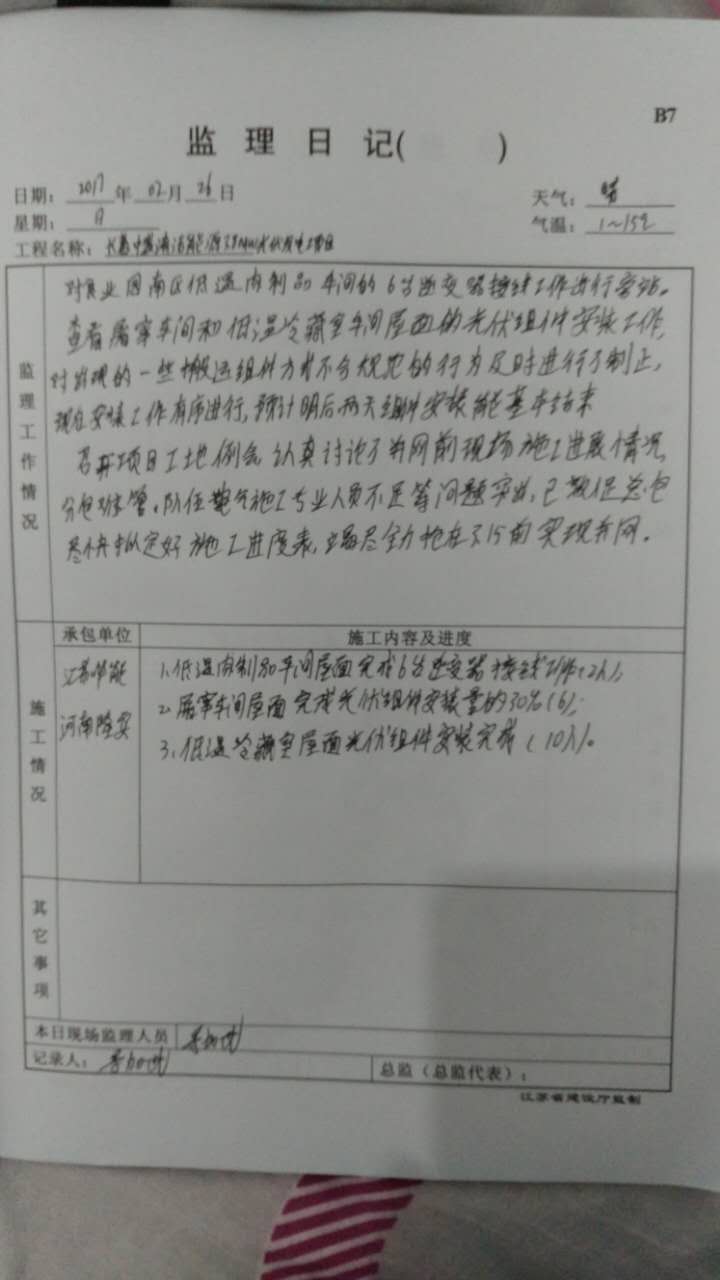 B7
监 理 日 记( )
日期: 2017 年 02 月 26 日
天气: 晴
星期: 日
气温: 1~15℃
工程名称: 光伏发电项目
监理工作情况
对食业园南区低温肉制品车间的6台逆变器接线工作进行旁站。
查看屠宰车间和低温冷藏室车间屋面的光伏组件安装工作,
对发现的一些搬运组件方式不合规范的行为及时进行了制止,
现在安装工作有序进行,预计明后两天组件安装能基本结束
召开项目工地例会,认真讨论了并网前现场施工进展情况,
分包 队伍电气施工专业人员不足等问题突出,已敦促总包
尽快拟定好施工进度表,竭尽全力抢在3.15前实现并网。
承包单位
施工内容及进度
施工情况
江苏
河南隆
1.低温肉制品车间屋面完成6台逆变器接线工作(2人);
2.屠宰车间屋面完成光伏组件安装量的30%(6);
3.低温冷藏室屋面光伏组件安装完成(10人)。
其它事项
本日现场监理人员
记录人:
总监(总监代表):
江苏省建设厅监制